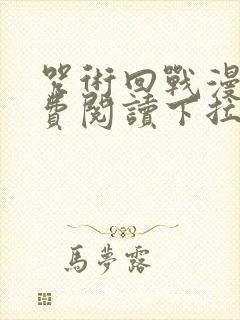 咒術回戰漫
費閱讀下拉
馬夢露